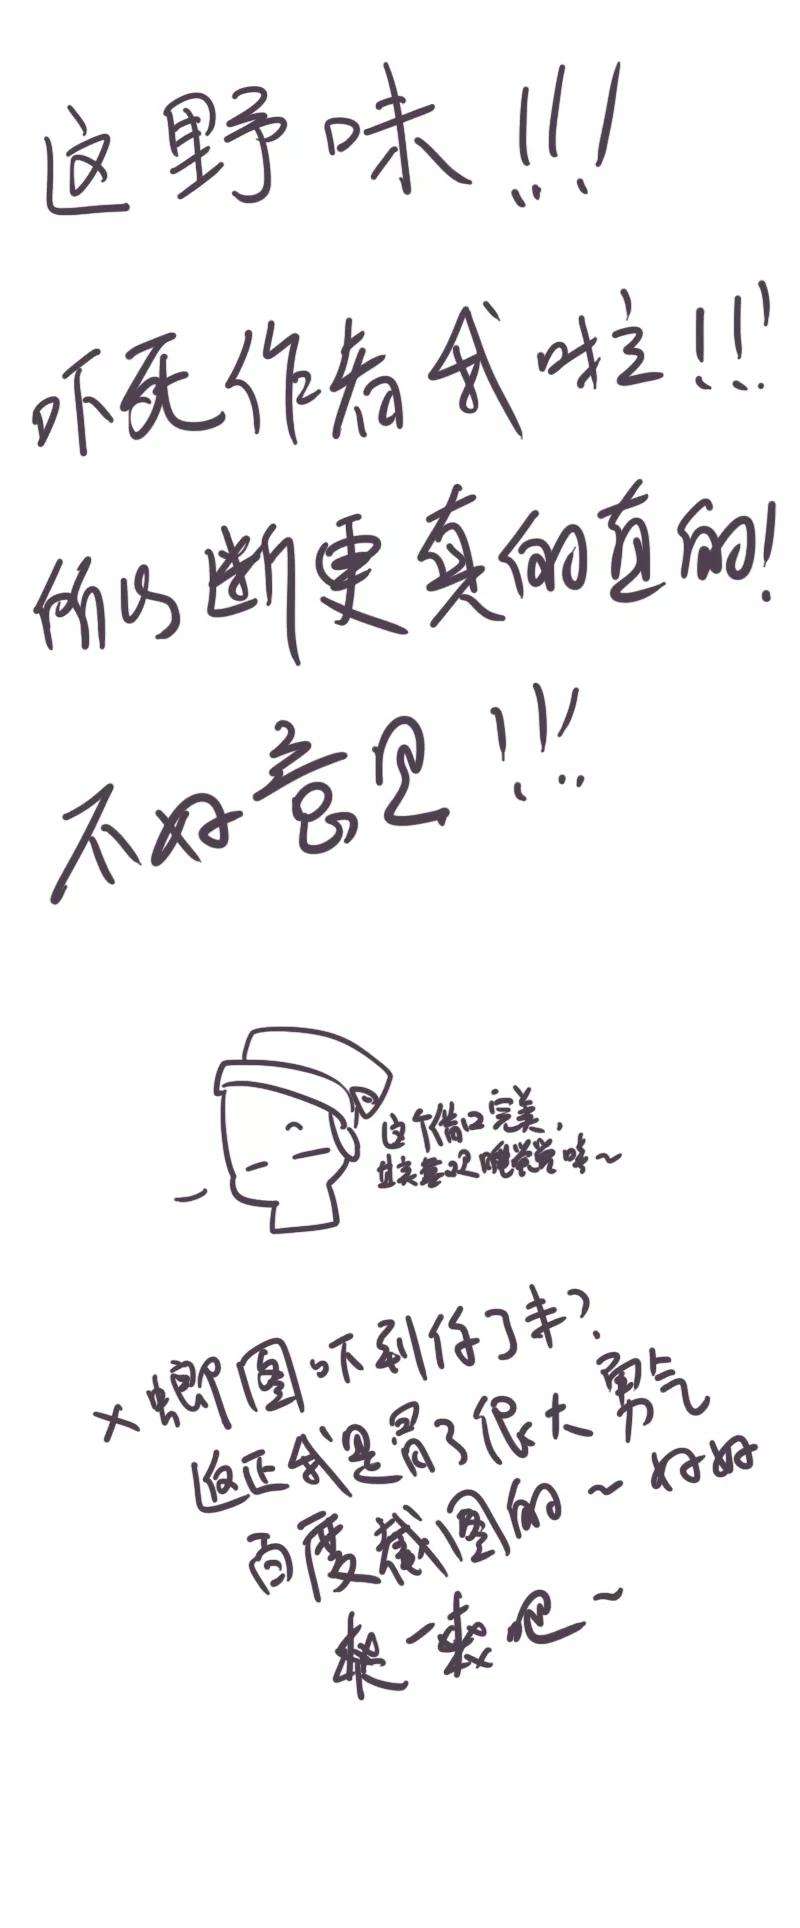 这野味!!!
吓死作者我啦!!!
所以断更真的真的!
不好意思!!!
这个借口完美,
其实喜欢嘎嘣脆~
×螂图吓到你了丰?
反正我是冒了很大勇气
百度截图的~好好
爽一爽吧~